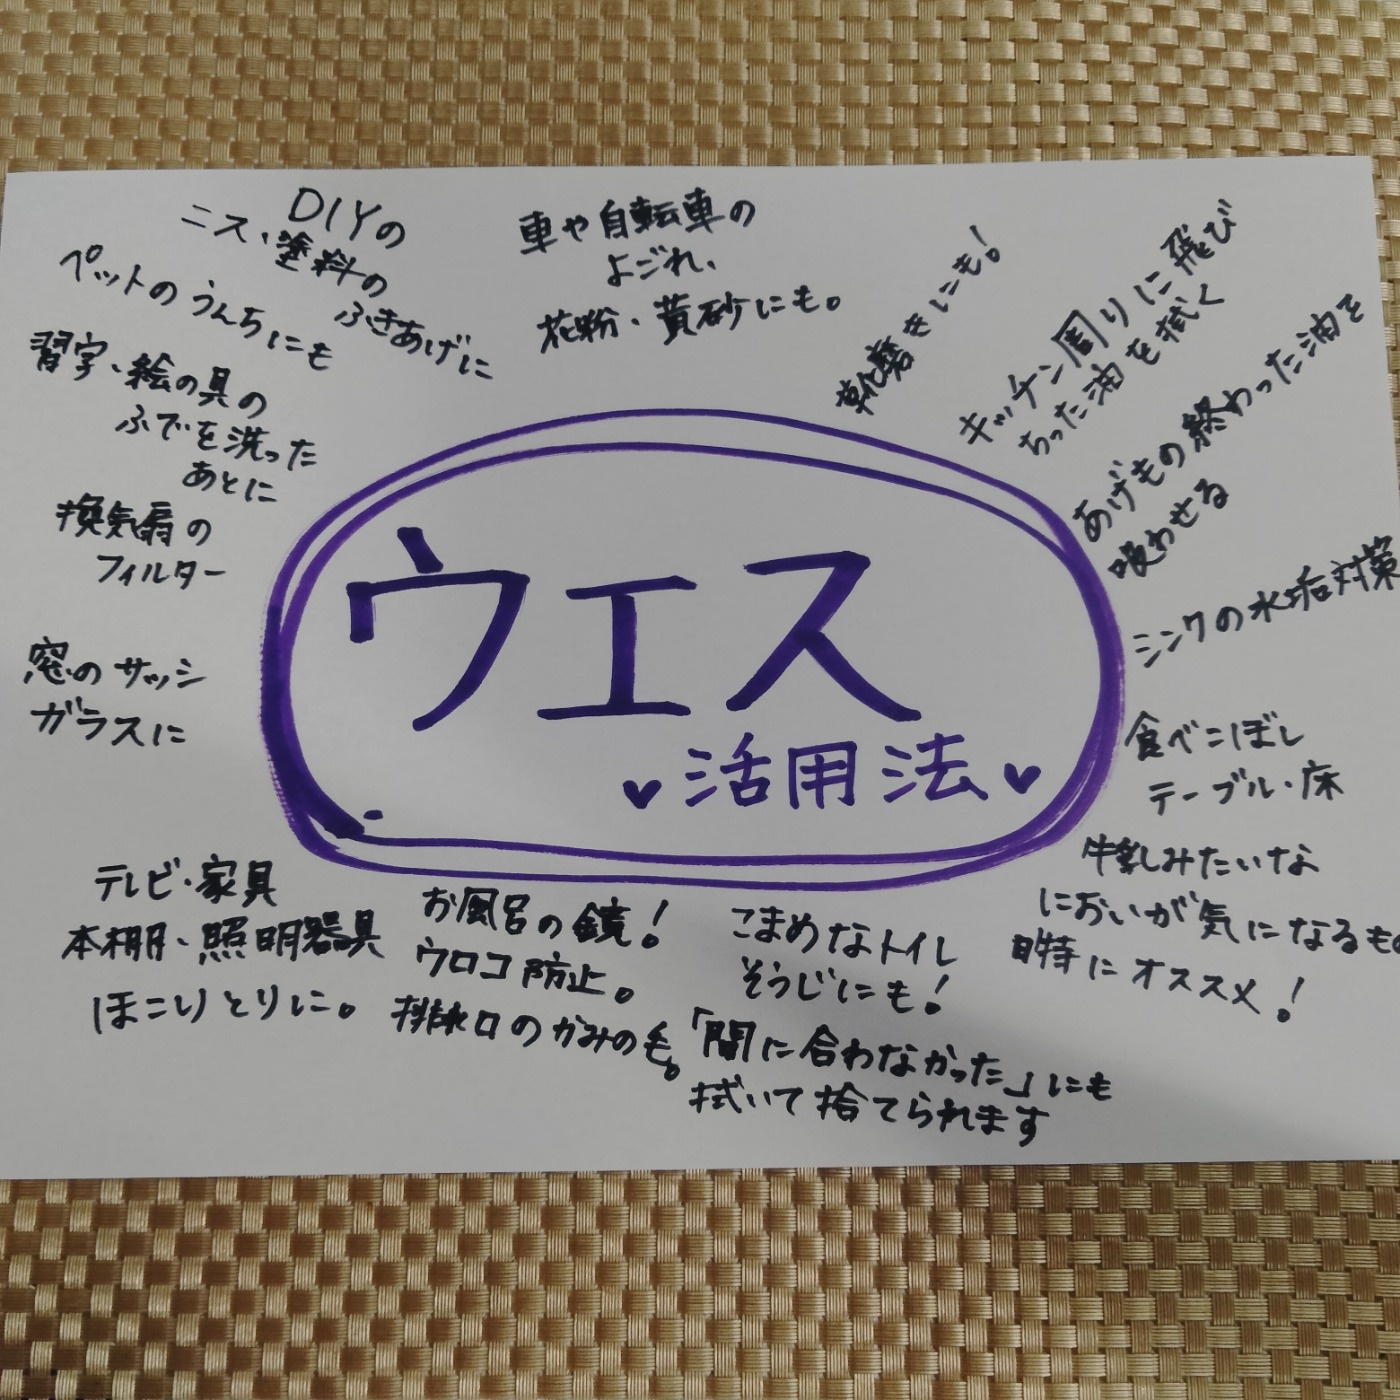 ウエス
♥活用法♥
DIYの
ニス・塗料の
ふきあげに
車や自転車の
よごれ、
花粉・黄砂にも。
靴磨きにも!
キッチン周りに飛び
ちった油を拭く
あげもの終わった油を
吸わせる
シンクの水垢対策
食べこぼし
テーブル・床
牛乳みたいな
においが気になるもの
時にオススメ!
こまめなトイレ
そうじにも!
「間に合わなかった」にも
拭いて捨てられます
お風呂の鏡!
ウロコ防止。
排水口のかみの毛。
テレビ・家具
本棚・照明器具
ほこりとりに。
窓のサッシ
ガラスに
換気扇の
フィルター
習字・絵の具の
ふでを洗った
あとに
ペットのうんちにも